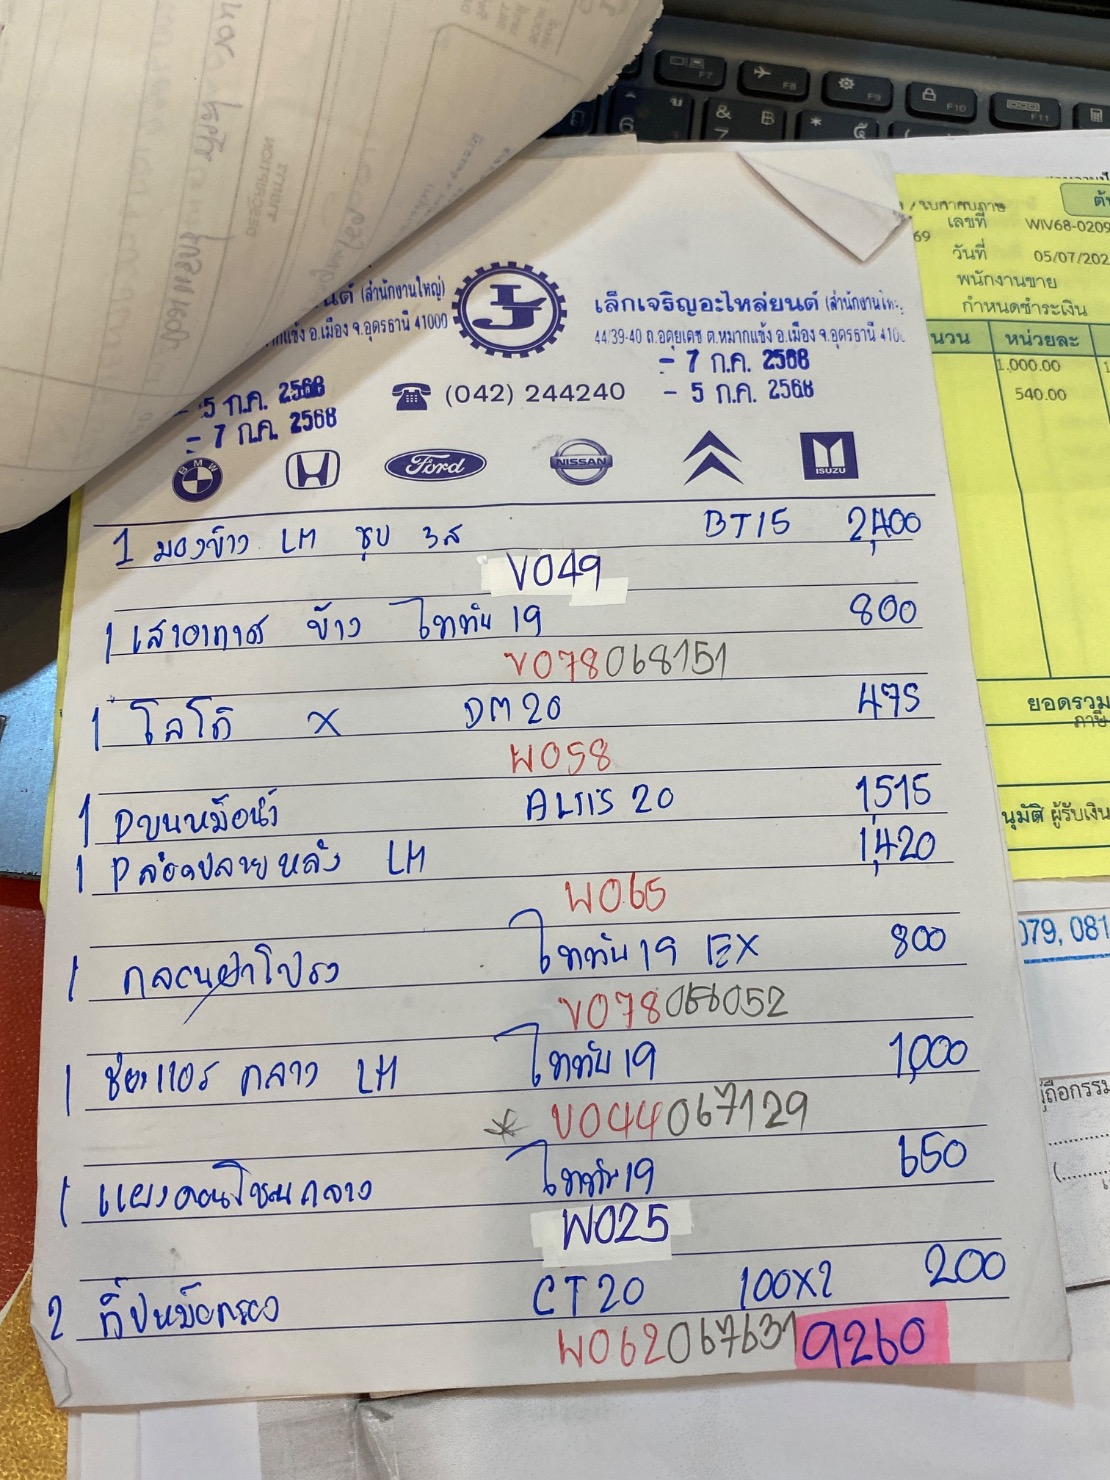 F7
F8
F9
F10
F11
& 7
B
*
เลขที่ WIV68-0209
69
วันที่ 05/07/202
พนักงานขาย
กำหนดชำระเงิน
นวน หน่วยละ
1,000.00
540.00
ยอดรวม
ภาษี
นุมัติ ผู้รับเงิน
079, 081
(สำนักงานใหญ่)
อ.เมือง จ.อุดรธานี 41000
เล็กเจริญอะไหล่ยนต์
44/39-40 ถ.อดุยเดช ต.หมากแข้ง อ.เมือง จ.อุดรธานี
- 7 ก.ค. 2568
- 5 ก.ค. 2568
(042) 244240
- 5 ก.ค. 2568
- 7 ก.ค. 2568
BMW
Ford
NISSAN
ISUZU
1 มองข้าง LM ชุบ 3ส BT15 2,400
V049
1 เสาอากาศ ข้าง ไททัน 19 800
V078068151
1 โลโก้ X DM20 475
W058
1 Pบนหม้อน้ำ ALTIS 20 1,515
1 Pล๊อคปลายหลัง LM 1,420
W065
1 กลอนฝาโปรง ไททัน 19 EX 800
V078068052
1 ช่องแอร์ กลาง LM ไททัน 19 1,000
* V044067129
1 แผงคอนโซนกลาง ไททัน 19 650
W025
2 กิ๊ปหม้อกรอง CT20 100X2 200
W062067631 9260